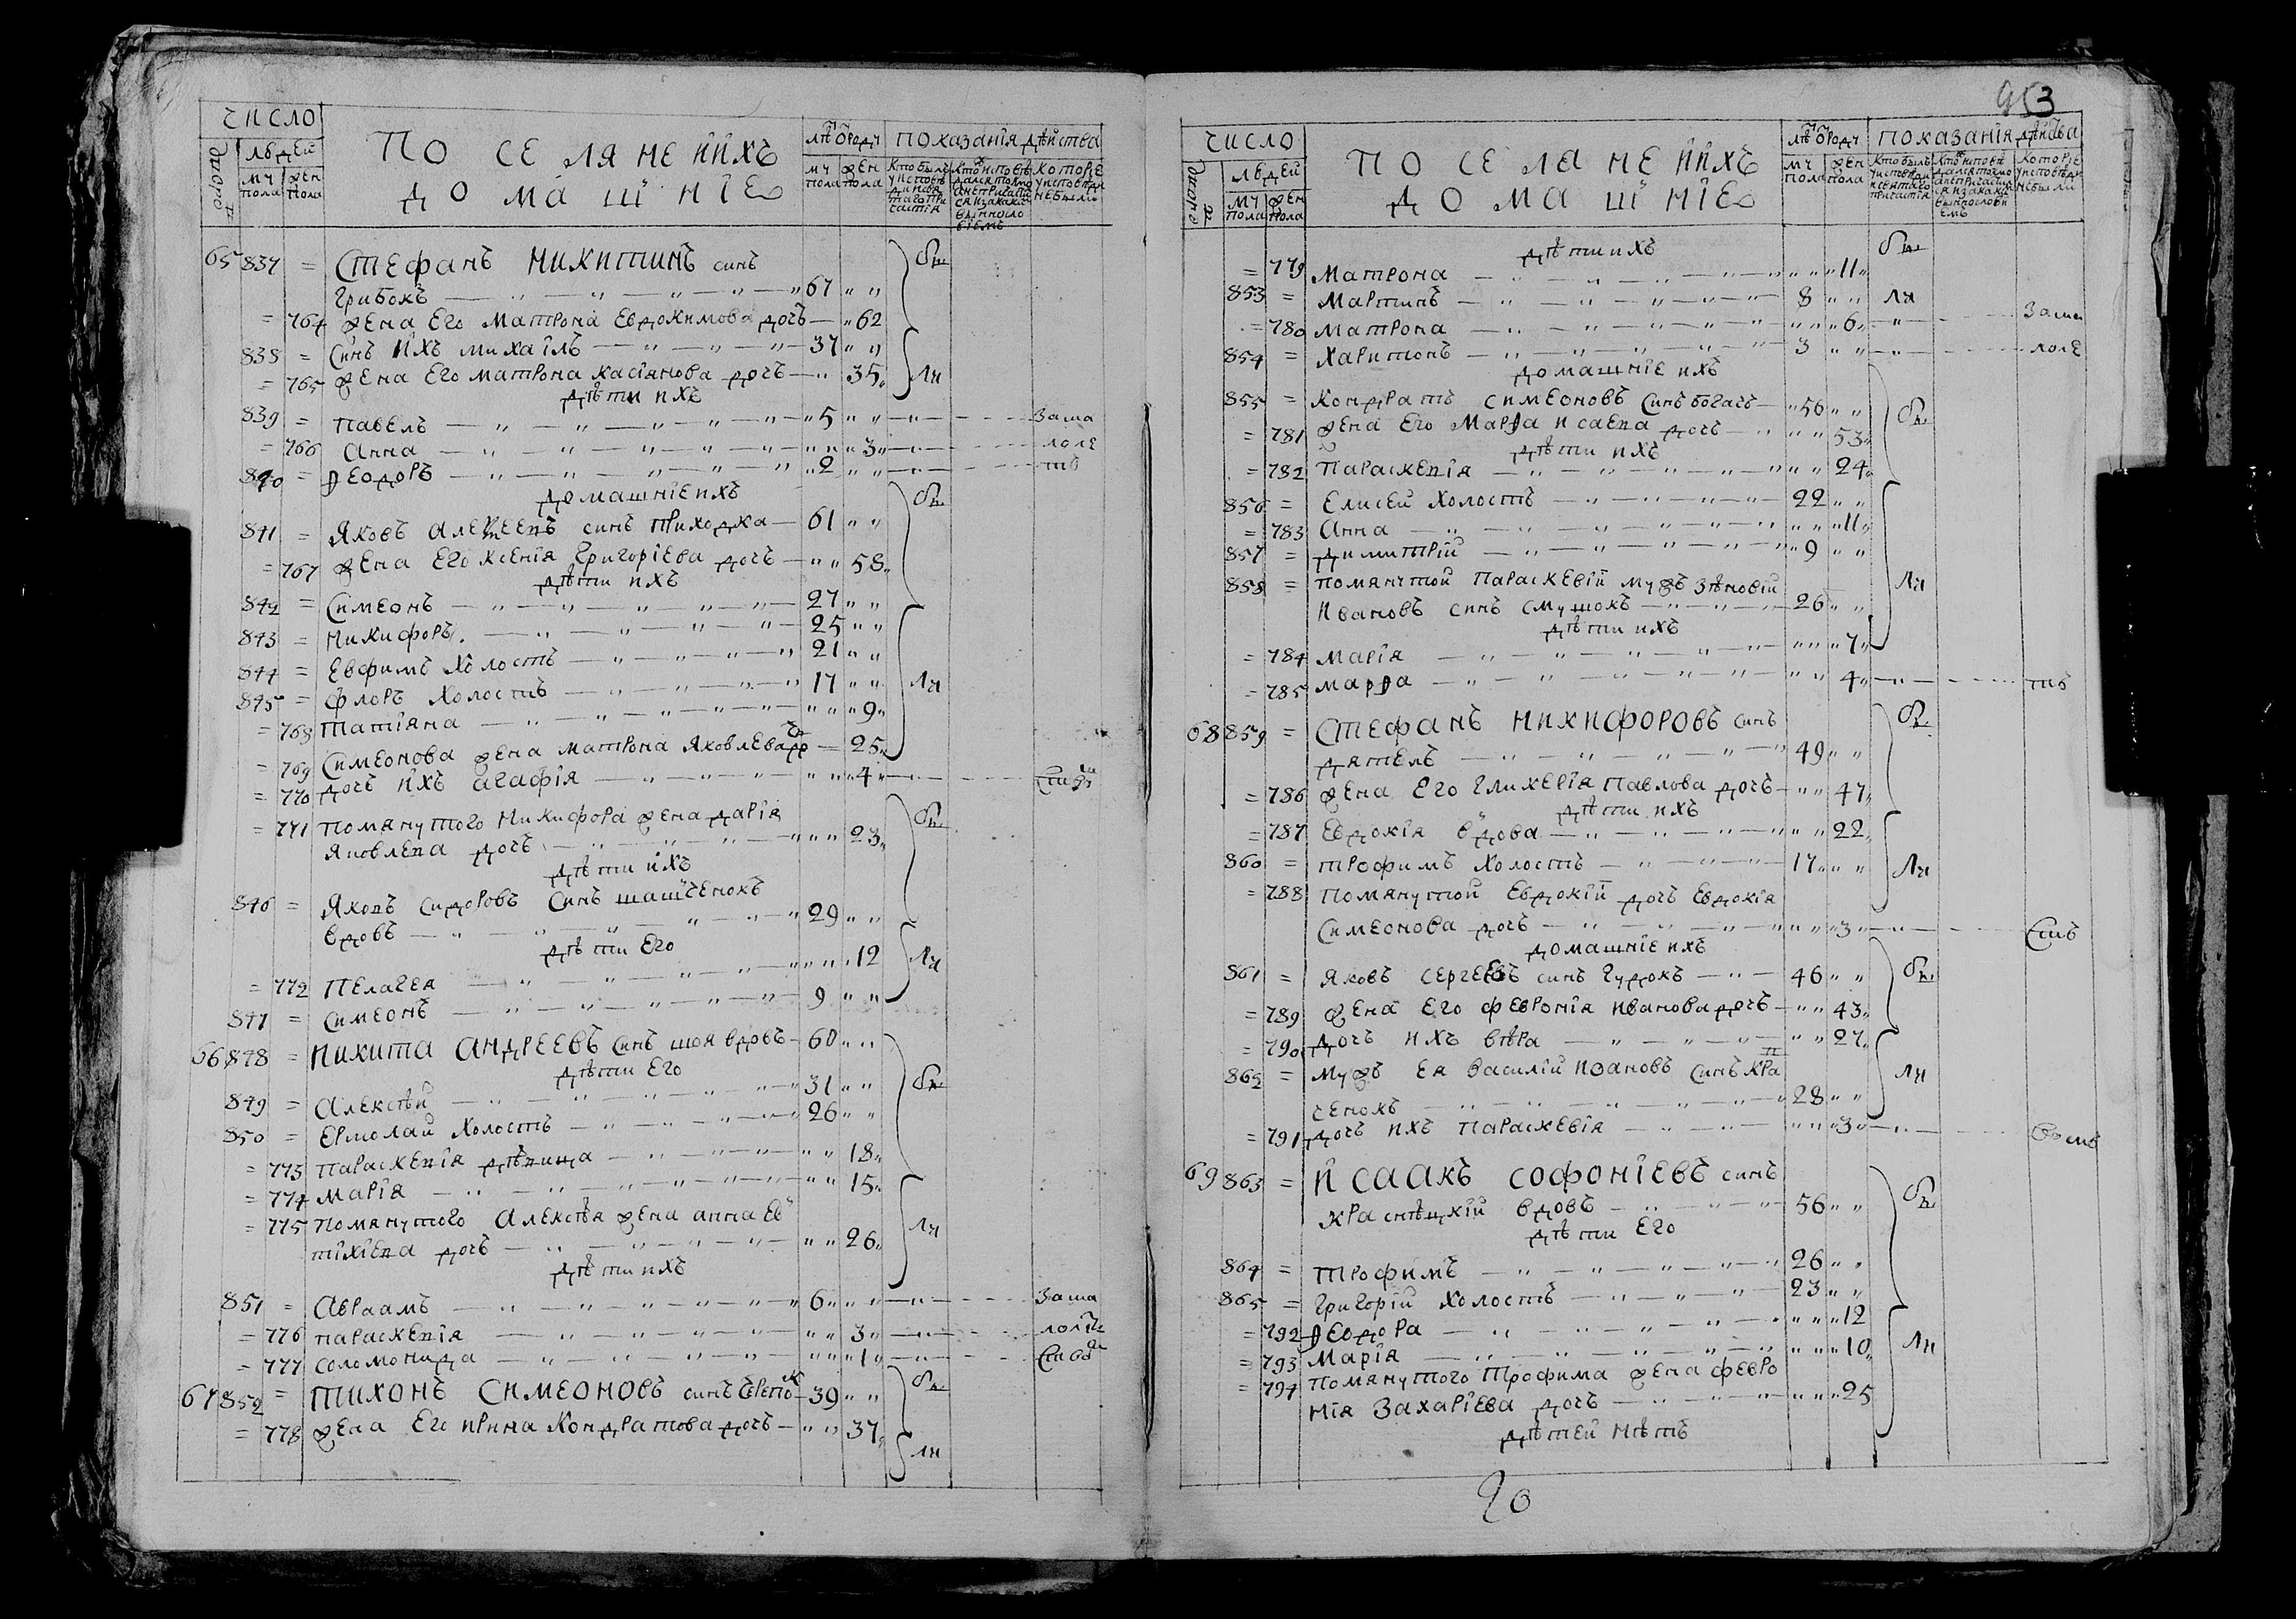 число
людей
му пола
жен пола
поселяне ййхъ
домашнїе
лѣтъ ороду
му пола
жен пола
показанїя дѣйства
65 837 = Стефанъ Никитинъ синъ
Грибокъ 67
= 764 жена Его матрона Евдокимова дочъ 62
838 = Синъ йхъ михаїлъ 37
= 765 жена Его матрона касїянова дочъ 35 ли
дѣти ихъ
839 = павелъ 5 зама
= 766 анна 3 лолѣ
840 = Ѳеодоръ 2 тв
домашнїе ихъ
841 = Яковъ алеѯеевъ синъ приходка 61
= 767 жена Его ксенїя Григорїева дочъ 58
дѣти ихъ
842 = Симеонъ 27
843 = Никифоръ 25
844 = Евфимъ холостъ 21
845 = Флоръ холостъ 17 ли
= 768 татїяна 9
= 769 Симеонова жена матрона Яковлева до 25
= 770 дочъ йхъ агафїя 4
= 771 помянутого Никифора жена дарїя
Яковлева дочъ 23
дѣти йхъ
846 = Яковъ сидоровъ Синъ шашченокъ
вдовъ 29
дѣти Его
= 772 Пелагея 12 ли
847 = Симеонъ 9
66 848 = Никита Андреевъ Синъ шоя вдовъ 60
дѣти Его
849 = Алексѣй 31
850 = Ермолай холостъ 26
= 773 параскевїя дѣвица 18
= 774 марїя 15
= 775 помянутого Алексѣя жена анна Ев
тїхїева дочъ 26 ли
дѣти ихъ
851 = Авраамъ 6 зама
= 776 параскевїя 3
= 777 соломонида 1
67 852 = Тихонъ Симеоновъ синъ черепо 39
= 778 жена Его ирина Кондратова дочъ 37 ли
953
число
людей
му пола
жен пола
поселяне ййхъ
домашнїе
лѣтъ ороду
му пола
жен пола
показанїя дѣйства
дѣти ихъ
= 779 Матрона 11
853 = Мартинъ 8 ли
= 780 матрона 6 зама
854 = Харитонъ 3 лолѣ
домашнїе ихъ
855 = Кондратъ симеоновъ синъ богачъ 56
= 781 жена Его Марѳа исаева дочъ 53
дѣти ихъ
= 782 параскевїя 24
856 = Елисей холостъ 22
= 783 Анна 11
857 = димитрїй 9
858 = помянутой параскевїй мужъ зѣновїй
Ивановъ синъ смушокъ 26 ли
дѣти ихъ
= 784 марїя 7
= 785 марѳа 4 тв
68 859 = Стефанъ Никифоровъ синъ
дятель 49
= 786 жена Его гликерїя павлова дочъ 47
дѣти ихъ
= 787 Евдокїя вдова 22
860 = трофимъ холостъ 17 ли
= 788 помянутой Евдокїй дочъ Евдокїя
Симеонова дочъ 3
домашнїе ихъ
861 = Яковъ сергеевъ синъ гудокъ 46
= 789 жена Его феvронїя иванова дочъ 43
= 790 дочъ ихъ вѣра 27
862 = мужъ Ея василїй ивановъ синъ кра
ченокъ 28 ли
= 791 дочъ ихъ параскевїя 3
69 863 = Исаакъ Софонїевъ синъ
краснѣцкїй вдовъ 56
дѣти Его
864 = трофимъ 26
865 = григорїй холостъ 23
= 792 Ѳеодора 12
= 793 марїя 10 ли
= 794 помянутого трофима жена февро
нїя захарїева дочъ 25
дѣтей нѣтъ
90